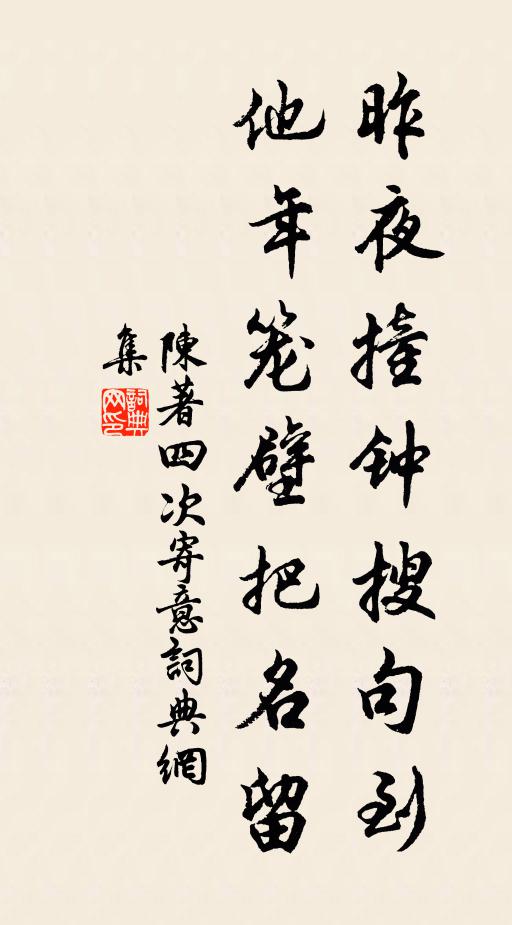 昨夜撞钟搜句到
他年笼壁把名留
陳著四次寄意詞典網
集
詞典
网印